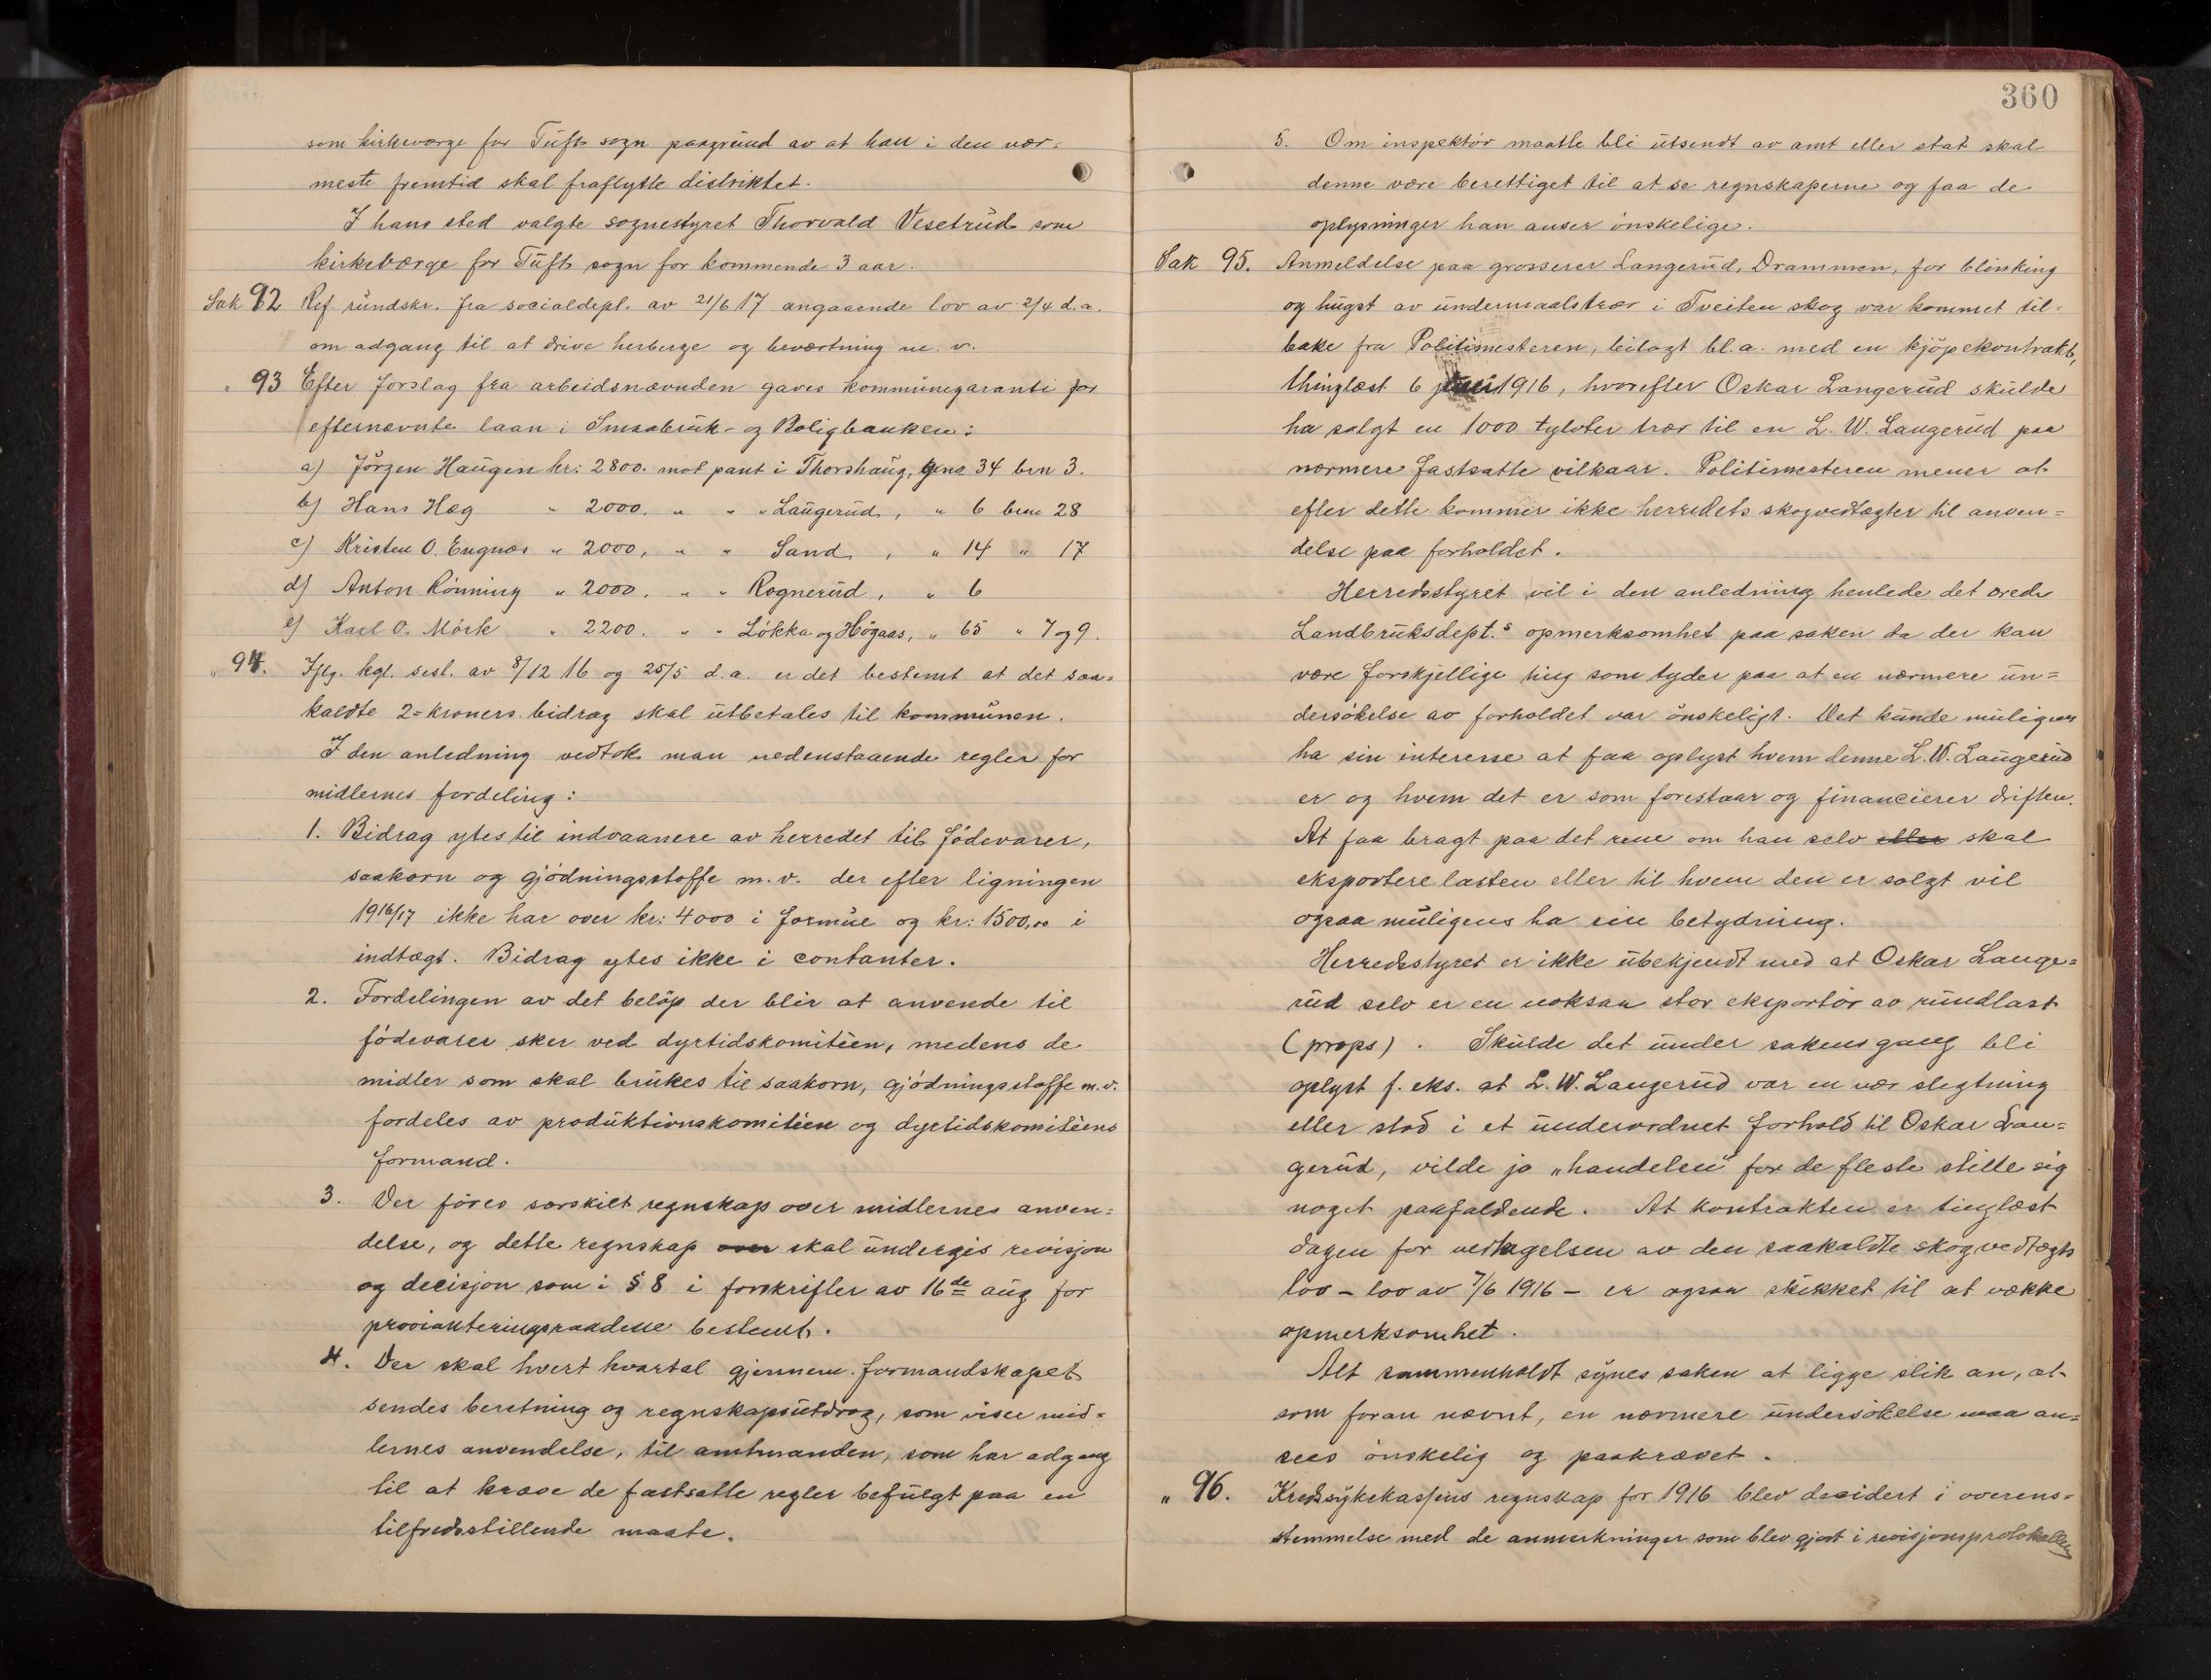 som kirkeværge for Tuft sogn paagrund av at han i den nær-
meste fremtid skal fraflytte distriktet.
I hans sted valgte sognestyret Thorvald Vesetrud som
kirkeværge for Tuft sogn for kommende 3 aar.
Sak 92 Ref. rundskr. fra socialdept. av 21/6 17 angaaende lov av 2/4 d.a.
om adgang til at drive herberge og beværtning m. v.
" 93 Efter forslag fra arbeidsnævnden gaves kommunegaranti for
efternævnte laan i Smaabruk- og Boligbanken:
a) Jörgen Haugen kr: 2800. mot pant i Thorshaug, gno 34 bno 3.
b) Hans Hæg " 2000. " " " Laugerud, " 6 bno 28
c) Kristen O. Engnæs " 2000, " " Sand, " 14 " 17
d) Anton Rönning " 2000. " " Rognerud, " 6
e) Karl O. Mörk " 2200. " " Lökka og Högaas, " 65 " 7 og 9.
" 94. Iflg. kgl. resl. av 8/12 16 og 25/5 d.a. er det bestemt at det saa-
kaldte 2-kroners bidrag skal utbetales til kommunen.
I den anledning vedtok man nedenstaaende regler for
midlernes fordeling:
1. Bidrag ytes til indvaanere av herredet til födevarer,
saakorn og gjödningsstoffe m.v. der efter ligningen
1916/17 ikke har over kr: 4000 i formue og kr: 1500,00 i
indtægt. Bidrag ytes ikke i contanter.
2. Fordelingen av det belöp der blir at anvende til
födevarer sker ved dyrtidskomitéen, medens de
midler som skal brukes til saakorn, gjödningsstoffe m.v.
fordeles av produktionskomitéen og dyrtidskomitéens
formand.
3. Der föres særskilt regnskap over midlernes anven-
delse, og dette regnskap over skal undergis revisjon
og decisjon som i § 8 i forskrifter av 16de aug for
provianteringsraadene bestemt.
4. Der skal hvert kvartal gjennem formandskapet
sendes beretning og regnskapsutdrag, som viser mid-
lernes anvendelse, til amtmanden, som har adgang
til at kræve de fastsatte regler befulgt paa en
tilfredsstillende maate.
360
5. Om inspektör maatte bli utsendt av amt eller stat skal
denne være berettiget til at se regnskaperne og faa de
oplysninger han anser önskelige.
Sak 95. Anmeldelse paa grosserer Langerud, Drammen, for blinking
og hugst av undermaalstrær i Tveiten skog var kommet til-
bake fra Politimesteren, bilagt bl.a. med en kjöpekontrakt,
thinglæst 6 juni 1916, hvorefter Oskar Langerud skulde
ha solgt en 1000 tylvter trær til en L. W. Langerud paa
nærmere fastsatte vilkaar. Politimesteren mener at
efter dette kommer ikke herredets skogvedtægter til anven-
delse paa forholdet.
Herredsstyret vil i den anledning henlede det ærede
Landbruksdept.s opmerksomhet paa saken da der kan
være forskjellige ting som tyder paa at en nærmere un-
dersökelse av forholdet var önskeligt. Det kunde muligens
ha sin interesse at faa oplyst hvem denne L.W. Langerud
er og hvem det er som forestaar og financierer driften.
At faa bragt paa det rene om han selv eller skal
eksportere lasten eller til hvem den er solgt vil
ogsaa muligens ha sin betydning.
Herredsstyret er ikke ubekjendt med at Oskar Lange-
rud selv er en noksaa stor eksportör av rundlast
(props). Skulde det under sakens gang bli
oplyst f. eks. at L. W. Langerud var en nær slegtning
eller stod i et underordnet forhold til Oskar Lan-
gerud, vilde jo „handelen" for de fleste stille sig
noget paafaldende. At kontrakten er tinglæst
dagen for vedtagelsen av den saakaldte skogvedtægts
lov – lov av 7/6 1916 – er ogsaa skikket til at vække
opmerksomhet.
Alt sammenholdt synes saken at ligge slik an, at
som foran nævnt, en nærmere undersökelse maa an-
sees önskelig og paakrævet.
" 96. Kredssykekassens regnskap for 1916 blev decidert i overens-
stemmelse med de anmerkninger som blev gjort i revisjonsprotokollen